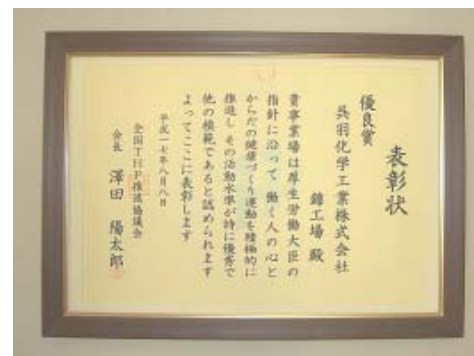 表彰状
優良賞
呉羽化学工業株式会社
錦工場 殿
貴事業場は厚生労働大臣の
指針に沿って働く人の心と
からだの健康づくり運動を積極的に
推進し その活動水準が特に優秀で
他の模範であると認められます
よってここに表彰します
平成一七年八月八日
全国THP推進協議会
会長 澤田 陽太郎